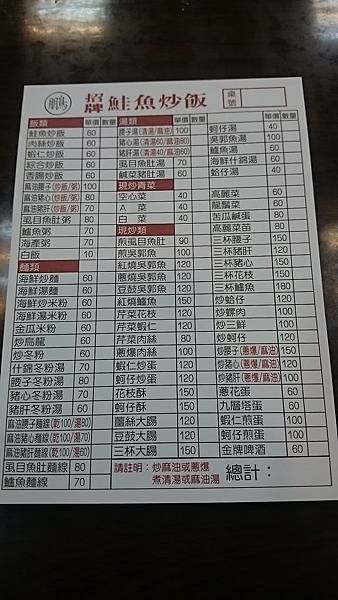 招牌 鮭魚炒飯 桌號
飯類 單價 數量
鮭魚炒飯 60
肉絲炒飯 60
蝦仁炒飯 60
綜合炒飯 60
香腸炒飯 60
麻油腰子(炒飯/粥) 100
麻油豬心(炒飯/粥) 80
麻油豬肝(炒飯/粥) 70
虱目魚肚粥 80
鱸魚粥 70
海產粥 70
白飯 10
麵類
海鮮炒麵 60
海鮮湯麵 60
海鮮炒米粉 60
海鮮湯米粉 60
金瓜米粉 60
炒烏龍 60
炒冬粉 60
什錦冬粉湯 70
腰子冬粉湯 80
豬心冬粉湯 70
豬肝冬粉湯 60
麻油腰子麵線(乾100/湯80)
麻油豬心麵線(乾100/湯70)
麻油豬肝麵線(乾100/湯60)
虱目魚肚麵線 80
鱸魚麵線 70
湯類 單價 數量
腰子湯(清湯/麻油) 100
豬心湯(清湯60/麻油80)
豬肝湯(清湯40/麻油60)
虱目魚肚湯 70
鹹菜豬肚湯 70
現炒青菜
空心菜 40
A 菜 40
白 菜 40
現炒類
煎虱目魚肚 90
煎吳郭魚 100
紅燒吳郭魚 120
蔥燒吳郭魚 120
豆鼓吳郭魚 120
紅燒鱸魚 150
芹菜花枝 150
芹菜蝦仁 120
芹菜肉絲 80
蔥爆肉絲 100
蝦仁炒蛋 120
蚵仔炒蛋 120
花枝酥 150
蚵仔酥 150
薑絲大腸 120
豆鼓大腸 120
三杯大腸 120
請註明：炒麻油或蔥爆
煮清湯或麻油湯
單價 數量
蚵仔湯 40
吳郭魚湯 60
鱸魚湯 60
海鮮什錦湯 60
蛤仔湯 40
高麗菜 60
龍鬚菜 60
苦瓜鹹蛋 80
高麗菜苗 80
三杯腰子 150
三杯豬肝 120
三杯豬心 150
三杯花枝 150
三杯鱸魚 180
炒蛤仔 120
炒螺肉 100
炒三鮮 100
炒蚵仔 120
炒腰子(蔥爆/麻油) 150
炒豬心(蔥爆/麻油) 120
炒豬肝(蔥爆/麻油) 100
蔥花蛋 60
九層塔蛋 60
蝦仁煎蛋 100
蚵仔煎蛋 100
金牌啤酒 60
總計：